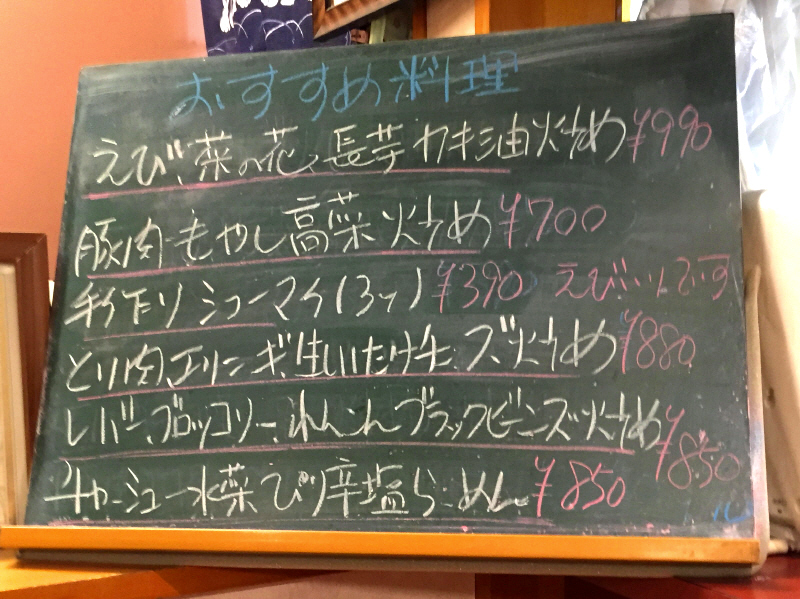 おすすめ料理
えび、菜の花、長芋カキ油炒め¥990
豚肉もやし高菜炒め¥700
手作りシューマイ(3ヶ)¥390 えび
とり肉エリンギ、生しいたけチーズ炒め¥880
レバー、ブロッコリー、れんこんブラックビーンズ炒め¥850
チャーシュー水菜ぴり辛塩らーめん¥850